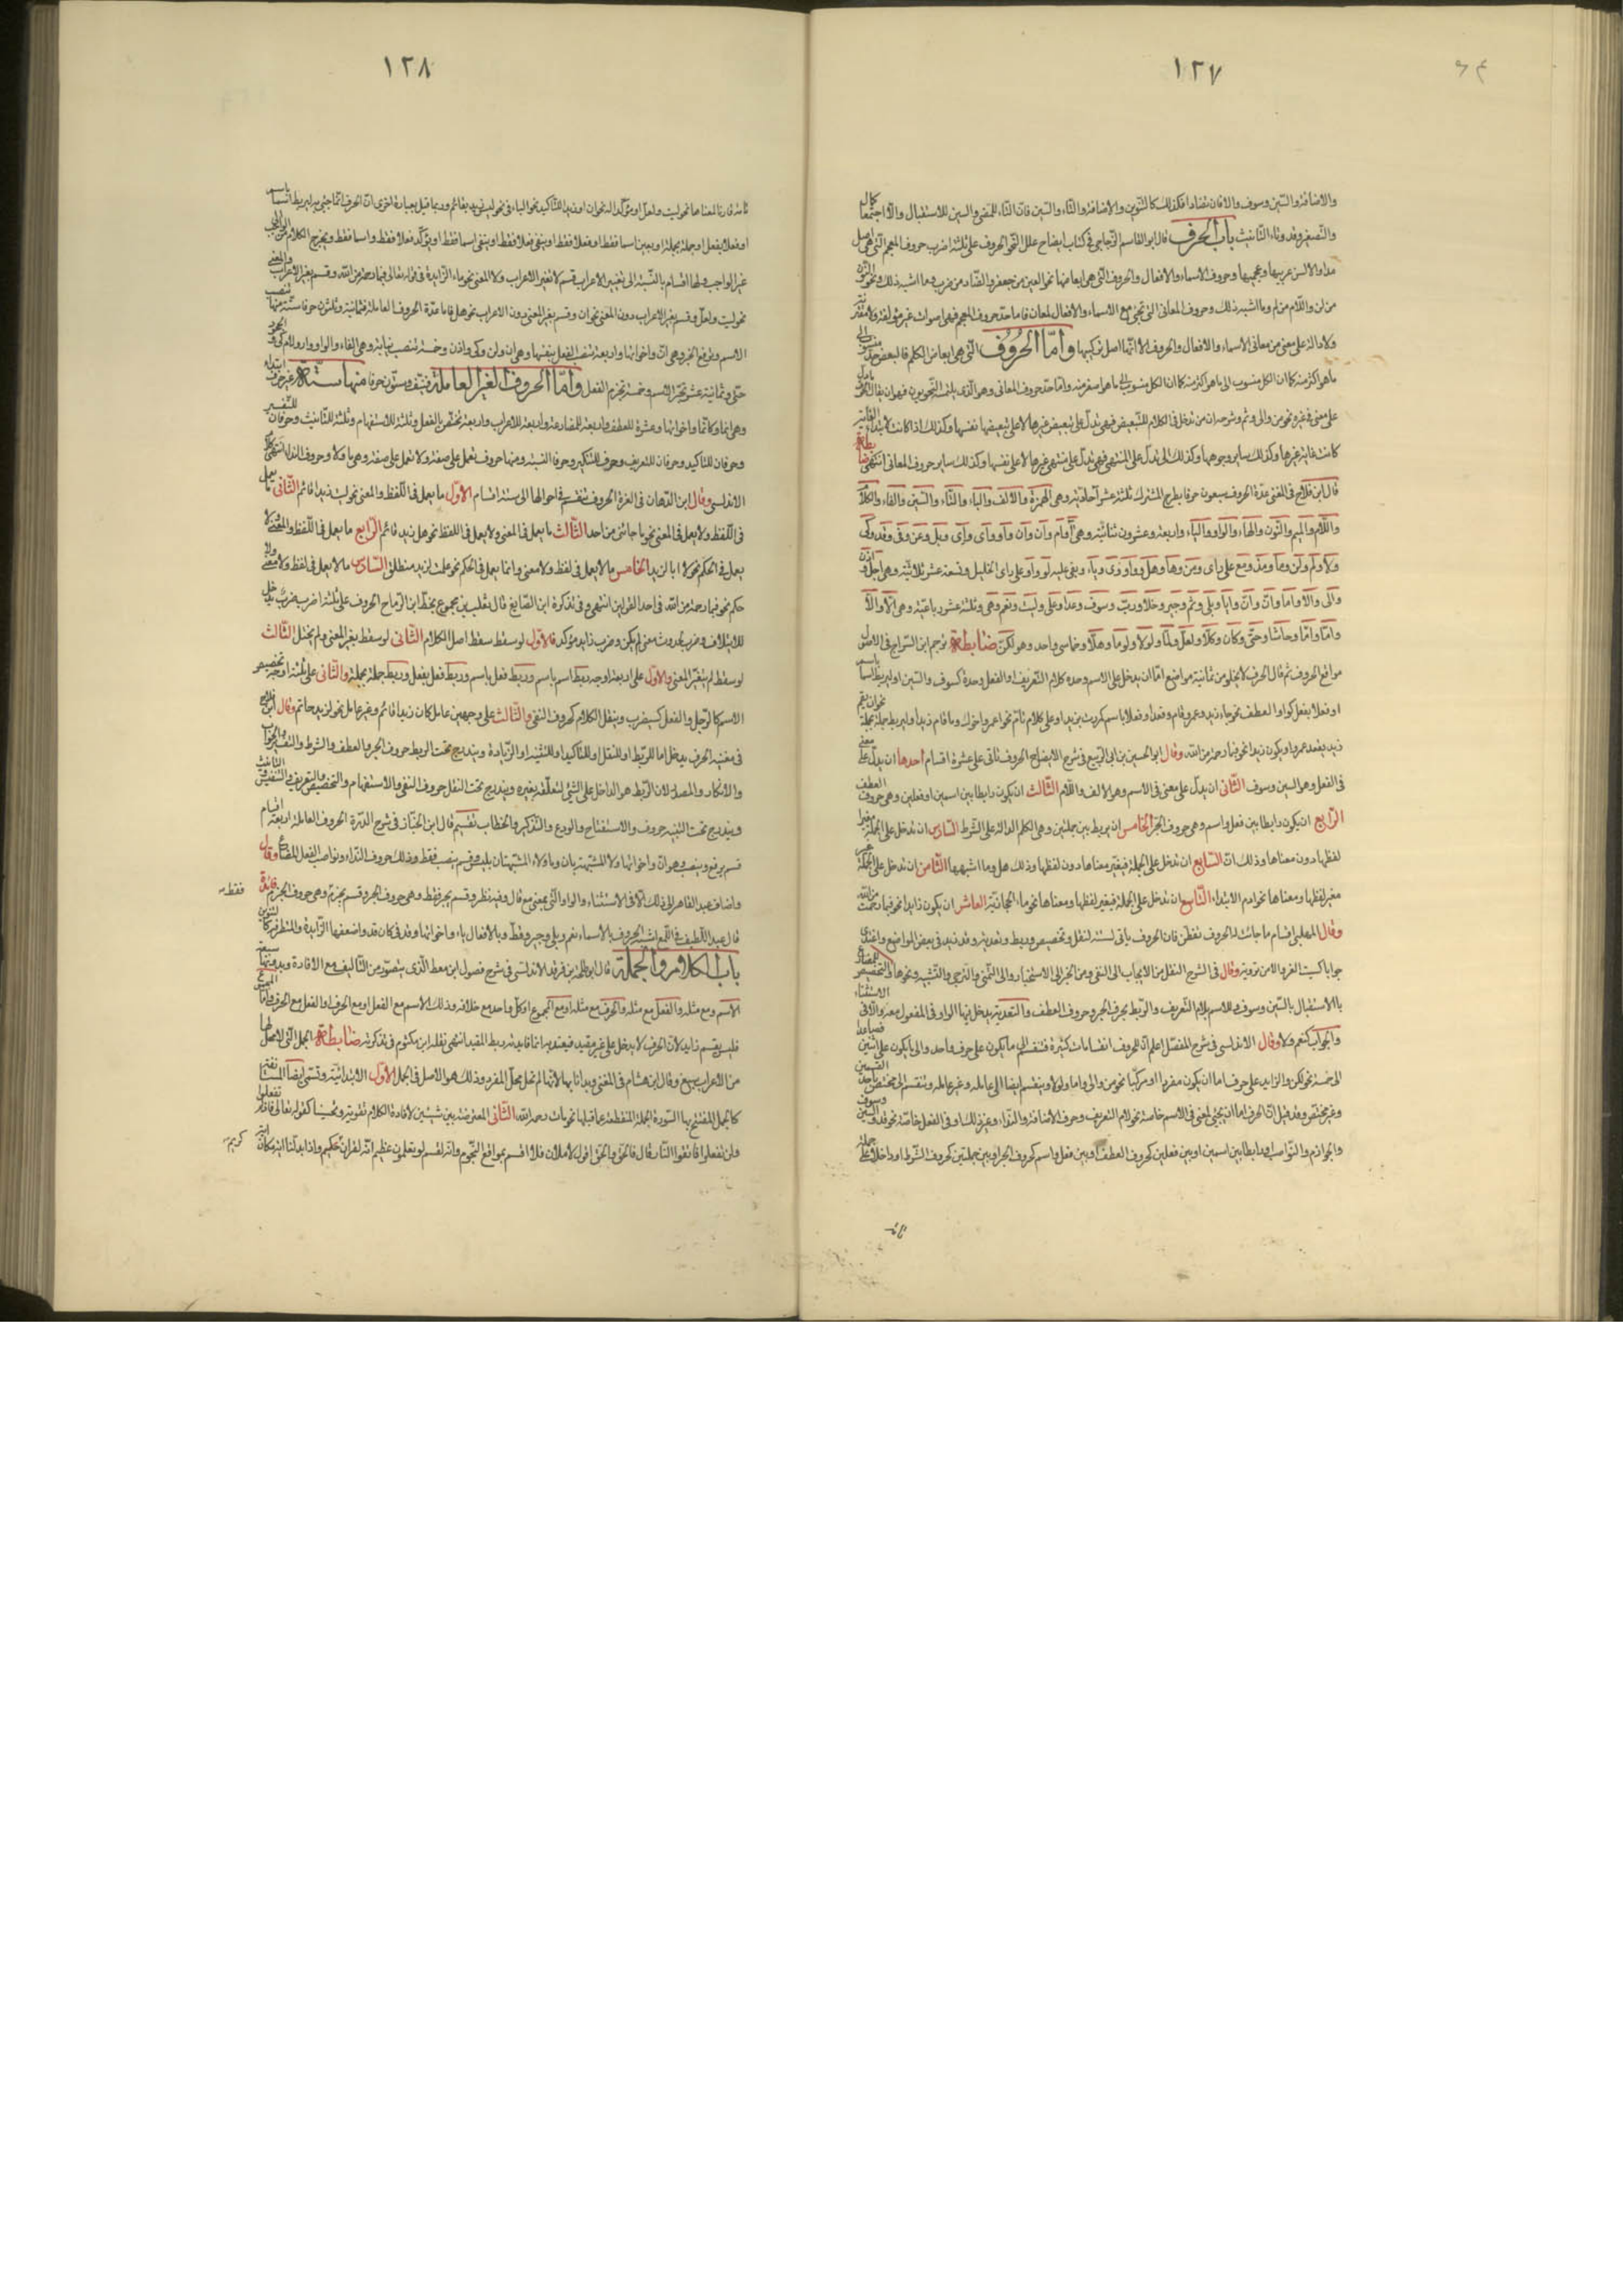 ١٢٧
والاضافة والسين وسوف والاضافة كالتنوين والاضافة والتاء والسين فان التاء للمضى والسين للاستقبال
والتصغير وقد وتاء التانيث باب الحرف قال ابو القاسم الزجاجى فى كتاب ايضاح علل النحو الحروف على ثلثة اضرب حروف المعجم التى هى اصل
مدار الالسن عربيها وعجميها وحروف الاسماء والافعال والحروف التى هى ابعاضها نحو العين من جعفر والضاد من ضرب وما اشبه ذلك ونحو النون
من لن واللام من لم وما اشبه ذلك وحروف المعانى التى تجئ مع الاسماء والافعال لمعان فاما حد حروف المعجم فهى اصوات غير مؤلفة ولا مقترنة
ولا دالة على معنى من معانى الاسماء والافعال والحروف الا انها اصل تركيبها واما الحروف التى هى ابعاض الكلم فالبعض حد منسوب الى
ماهو اكثر منه كما ان الكل منسوب الى ماهو اصغر منه واما حد حروف المعانى وهو الذى يلتمسه النحويون فهو ان يقال الحرف ما دل
على معنى فى غيره نحو من والى وثم وشرحه ان من تدخل فى الكلام للتبعيض فهى تدل على تبعيض غيرها لا على تبعيضها نفسها وكذلك اذا كانت لابتداء الغاية
كانت غاية غيرها وكذلك سائر وجوهها وكذلك الى تدل على المنتهى فهى تدل على منتهى غيرها لا على نفسها وكذلك سائر حروف المعانى انتهى ضابطة
قال ابن فلاح فى المغنى عدة الحروف سبعون حرفا بطرح المشترك ثلثة عشر احادية وهى الهمزة والالف والباء والتاء والسين والفاء والكاف
واللام والميم والنون والهاء والواو والياء واربعة وعشرون ثنائية وهى آ وام وان وان وأو وأى وإى وبل وعن وفى وقد وكى
ولا ولم ولن وما ومذ ومع على راى ومن وها وهل ووا ووى ويا وبقى عليه لو وآو على راى الخليل وتسعة عشر ثلاثية وهى اجل واذن
والى والا واما وان وان وايا وبلى وثم وجير وخلا ورب وسوف وعدا وعلى وليت ونعم وهى وثلثة عشر رباعية وهى الا والا
واما واما وحاشا وحتى وكان وكلا ولعل ولما ولولا ولوما وهلا وخماسى واحد وهو لكن ضابطة ترجم ابن السراج فى الاصول
مواقع الحروف ثم قال الحرف لا يخلو من ثمانية مواضع اما ان يدخل على الاسم وحده كلام التعريف والفعل وحده كسوف والسين او ليربط اسما باسم
او فعلا بفعل كواو العطف نحو جاء زيد وعمرو وقام وقعد او فعلا باسم كمررت بزيد او على كلام تام نحو اعمرو اخوك وما قام زيد او ليربط جملة بجملة نحو ان يقم
زيد يقعد عمرو او يكون زائدا نحو فبما رحمة من الله وقال ابو الحسين بن ابى الربيع فى شرح الايضاح الحروف تاتى على عشرة اقسام احدها ان يدل على معنى
فى الفعل وهو السين وسوف الثانى ان يدل على معنى فى الاسم وهو الالف واللام الثالث ان يكون رابطا بين اسمين او فعلين وهى حروف العطف
الرابع ان يكون رابطا بين فعل واسم وهى حروف الجر الخامس ان يربط بين جملتين وهى الكلم الدالة على الشرط السادس ان تدخل على الجملة مغيرا
لفظها دون معناها وذلك ان السابع ان تدخل على الجملة فيغير معناها دون لفظها وذلك هل وما اشبهها الثامن ان تدخل على الجملة غير
مغير لفظها ومعناها نحو لام الابتداء التاسع ان تدخل على الجملة فيغير لفظها ومعناها نحو ما الحجازية العاشر ان يكون زايدا نحو فبما رحمة من الله
وقال المهلبى اقسام ما جاءت له الحروف تفطن فان الحروف ياتى لستة لنقل وتخصيص وربط وتعدية وقد تزيد فى بعض المواضع واغتدى
جوابا كسيت العز والامن ترديه وقال فى الشرح النقل من الايجاب الى النفى ومن الخبر الى الاستخبار والى التمنى والترجى والتشبيه ونحوها والتخصيص للمضارع
بالاستقبال بالسين وسوف والاسم بلام التعريف والربط بحرف الجر وحروف العطف والتعدية يدخل فيها الواو فى المفعول معه والا فى الاستثناء
والجواب كنعم ولا وقال الاندلسى فى شرح المفصل اعلم ان للحروف انقسامات كثيرة فتنقسم الى ما يكون على حرف واحد والى ما يكون على اثنين فصاعدا
الى خمسة نحو لكن والزايد على حرف اما ان يكون مفردا او مركبا نحو من والى واما ولولا وينقسم ايضا الى عاملة وغير عاملة وتنقسم الى مختص باحد القسمين
وغير مختص وقد قيل ان الحرف اما ان يجئ لمعنى فى الاسم خاصة نحو لام التعريف وحرف الاضافة والنداء وغير ذلك او فى الفعل خاصة نحو قد والسين وسوف
والجوازم والنواصب او رابطا بين اسمين او بين فعلين كحروف العطف او بين فعل واسم كحروف الجر او بين جملتين كحروف الشرط او داخلا على جملة
١٢٨
تامة قارنا لمعناها نحو ليت ولعل او مؤكدا له نحو ان او زيدا للتاكيد نحو الباء فى نحو ليس زيد بقائم وربما قيل بعبارة اخرى ان الحرف انما جئ به ليربط اسما باسم
او فعلا بفعل او جملة بجملة او يعين اسما فقط او فعلا فقط او ينفى فعلا فقط او ينفى اسما فقط او يؤكد فعلا فقط واسما فقط ويخرج الكلام من الواجب الى
غير الواجب ولها اقسام بالنسبة الى تغيير الاعراب قسم لا تغير الاعراب ولا المعنى نحو ما الزايدة فى قوله تعالى فبما رحمة من الله وقسم يغير الاعراب والمعنى
نحو ليت ولعل وقسم يغير الاعراب دون المعنى نحو ان وقسم يغير المعنى دون الاعراب نحو هل فاما عدة الحروف العاملة فثمانية وثلثون حرفا ستة منها تنصب
الاسم وترفع الخبر وهى ان واخواتها واربعة تنصب الفعل بنفسها وهى ان ولن وكى واذن وخمسة تنصب نيابة وهى الفاء والواو واو ولام كى والجحود
حتى وثمانية عشر تجر الاسم وخمسة تجزم الفعل واما الحروف الغير العاملة فنيف وستون حرفا منها ستة غير حروف ابتداء
وهى انما وكانما واخواتها وعشرة للعطف واربعة للمضارعة واربعة للاعراب واربعة تختص بالفعل وثلثة للاستفهام وثلثة للتانيث وحرفان للتفسير
وحرفان للتاكيد وحرفان للتعريف وحرف للتنكير وحرفا التنبيه ومنها حروف تعمل على صفة ولا تعمل على صفة وهى ما ولا وحروف النداء انتهى كلام
الاندلسى وقال ابن الدهان فى الغرة الحروف تنقسم فى احوالها الى ستة اقسام الاول ما يعمل فى اللفظ والمعنى نحو ليت زيدا قائم الثانى ما يعمل
فى اللفظ ولا يعمل فى المعنى نحو ما جاءنى من احد الثالث ما يعمل فى المعنى ولا يعمل فى اللفظ نحو هل زيد قائم الرابع ما يعمل فى اللفظ والمعنى ولا
يعمل فى الحكم نحو لا ابا لزيد الخامس ما لا يعمل فى لفظ ولا معنى وانما يعمل فى الحكم نحو علمت لزيد منطلق السادس ما لا يعمل فى لفظ ولا معنى ولا
حكم نحو فبما رحمة من الله فى احد القولين انتهى وفى تذكرة ابن الصايغ قال نقلت من مجموع بخط ابن الرماح الحروف على ثلثة اضرب ضرب يدخل
للائتلاف وضرب لحدوث معنى لم يكن وضرب زايد مؤكد فالاول لو سقط سقط اصل الكلام الثانى لو سقط يغير المعنى ولم يختل الثالث
لو سقط لم يتغير المعنى والاول على اربعة اوجه ربط اسم باسم وربط فعل باسم وربط فعل بفعل وربط جملة بجملة والثانى على ثلثة اوجه تخصيص
الاسم كالرجل والفعل كسيضرب وينقل الكلام كحروف النفى والثالث على وجهين عامل كان زيدا قائم وغير عامل نحو لزيد حاتم وقال ابن فلاح
فى مغنيه الحرف يدخل اما للربط او للنقل او للتاكيد او للتنبيه او الزيادة ويندرج تحت الربط حروف الجر والعطف والشرط والتفسير والجواب
والانكار والمصدر لان الربط هو الداخل على الشئ لتعلقه بغيره ويندرج تحت النقل حروف النفى والاستفهام والتخصيص والتعريف والتنفيس والتانيث
ويندرج تحت التنبيه حروف والاستفتاح والردع والتذكير والخطاب تقسيم قال ابن الخباز فى شرح الدرة الحروف العاملة اربعة اقسام
قسم يرفع وينصب وهو ان واخواتها ولا المشبهة بان وما ولا المشبهتان بليس وقسم ينصب فقط وذلك حروف النداء ونواصب الفعل المضارع وقال
واضاف عبد القاهر الى ذلك الا فى الاستثناء والواو التى بمعنى مع قال وفيه نظر وقسم يجر فقط وهى حروف الجر وقسم يجزم وهى حروف الجزم فائدة
فقط
قال عبد اللطيف فى اللمع اشبه الحروف بالاسماء نعم وبلى وجير وقط وبالافعال ياء واخواتها وقد فى كان قد واضعفها الزايدة والمتطرفة كالتنوين
باب الكلام والجملة قال ابن طلحة بن فرقد الاندلسى فى شرح فصول ابن معط الذى يتصور من التاليف مع الافادة وبدونها سبعة
الاسم ومع مثله والفعل مع مثله والحرف مع مثله او مع المجموع او كل واحد مع خلافه وذلك الاسم مع الفعل او مع الحرف او الفعل مع الحرف واما المجموع
فليس بقسم زايد لان الحرف لا يدخل على غير مفيد فيعقد به انما فايدته ربط المقيد انتهى نقله ابن مكتوم فى تذكرته ضابطة الجمل التى لا محل لها
من الاعراب سبع وقال ابن هشام فى المغنى وبدانا بها لانها لم تحل محل المفرد وذلك هو الاصل فى الجمل الاول الابتدائية وتسمى ايضا المستانفة
كالجمل المفتتح بها السورة الجملة المنقطعة عما قبلها نحو مات رحمه الله الثانى المعترضة بين شيئين لافادة الكلام تقوية وتحسينا كقوله تعالى فان لم تفعلوا
ولن تفعلوا فاتقوا النار قال فالحق والحق اقول لاملان فلا اقسم بمواقع النجوم وانه لقسم لو تعلمون عظيم انه لقران حكيم واذا بدلنا اية مكان اية
كريم